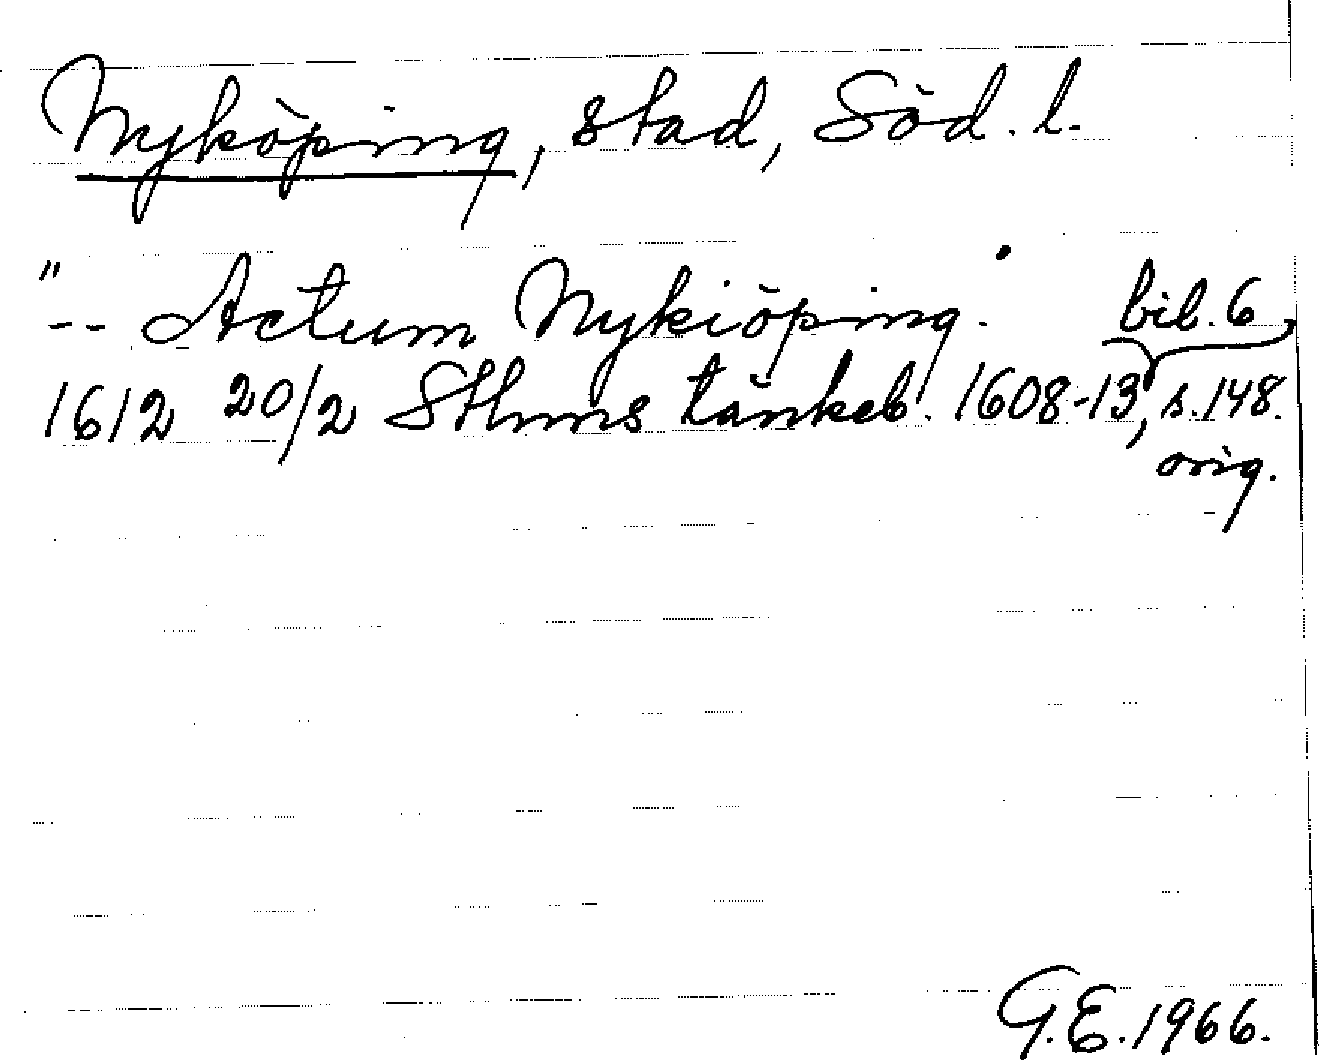 Nyköping, stad, Söd. l.
"
-- Actum Nykiöping. bil. 6,
1612 20/2 Sthms tänkeb. 1608-13, s. 148.
orig.
G.E. 1966.